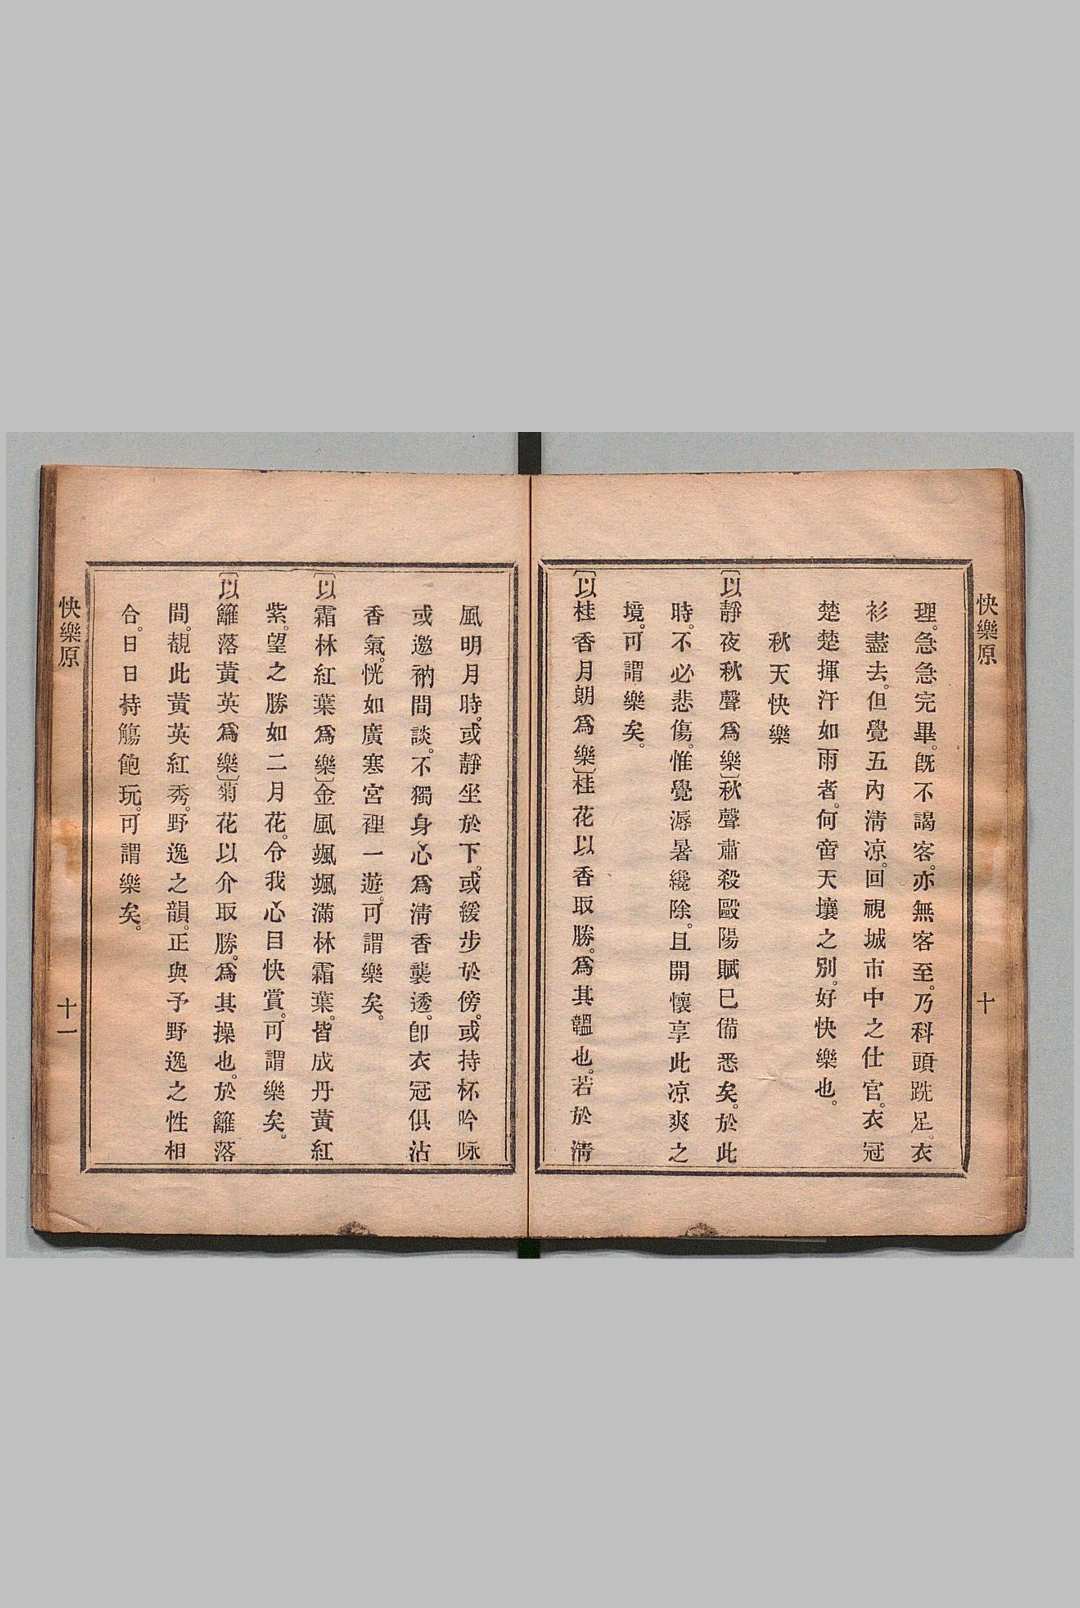 快樂原
十
理。急急完畢。旣不謁客。亦無客至。乃科頭跣足。衣
衫盡去。但覺五內淸凉。回視城市中之仕官。衣冠
楚楚揮汗如雨者。何啻天壤之別。好快樂也。
秋天快樂
〔以靜夜秋聲爲樂〕秋聲肅殺毆陽賦已備悉矣。於此
時。不必悲傷。惟覺溽暑纔除。且開懷享此凉爽之
境。可謂樂矣。
〔以桂香月朗爲樂〕桂花以香取勝。爲其韞也。若於淸
風明月時。或靜坐於下。或緩步於傍。或持杯吟咏
或邀衲間談。不獨身心爲淸香襲透。卽衣冠俱沾
香氣。恍如廣寒宮裡一遊。可謂樂矣。
〔以霜林紅葉爲樂〕金風颯颯滿林霜葉。皆成丹黃紅
紫。望之勝如二月花。令我心目快賞。可謂樂矣。
〔以籬落黃英爲樂〕菊花以介取勝。爲其操也。於籬落
間。覩此黃英紅秀。野逸之韻。正與予野逸之性相
合。日日持觴飽玩。可謂樂矣。
快樂原
十一